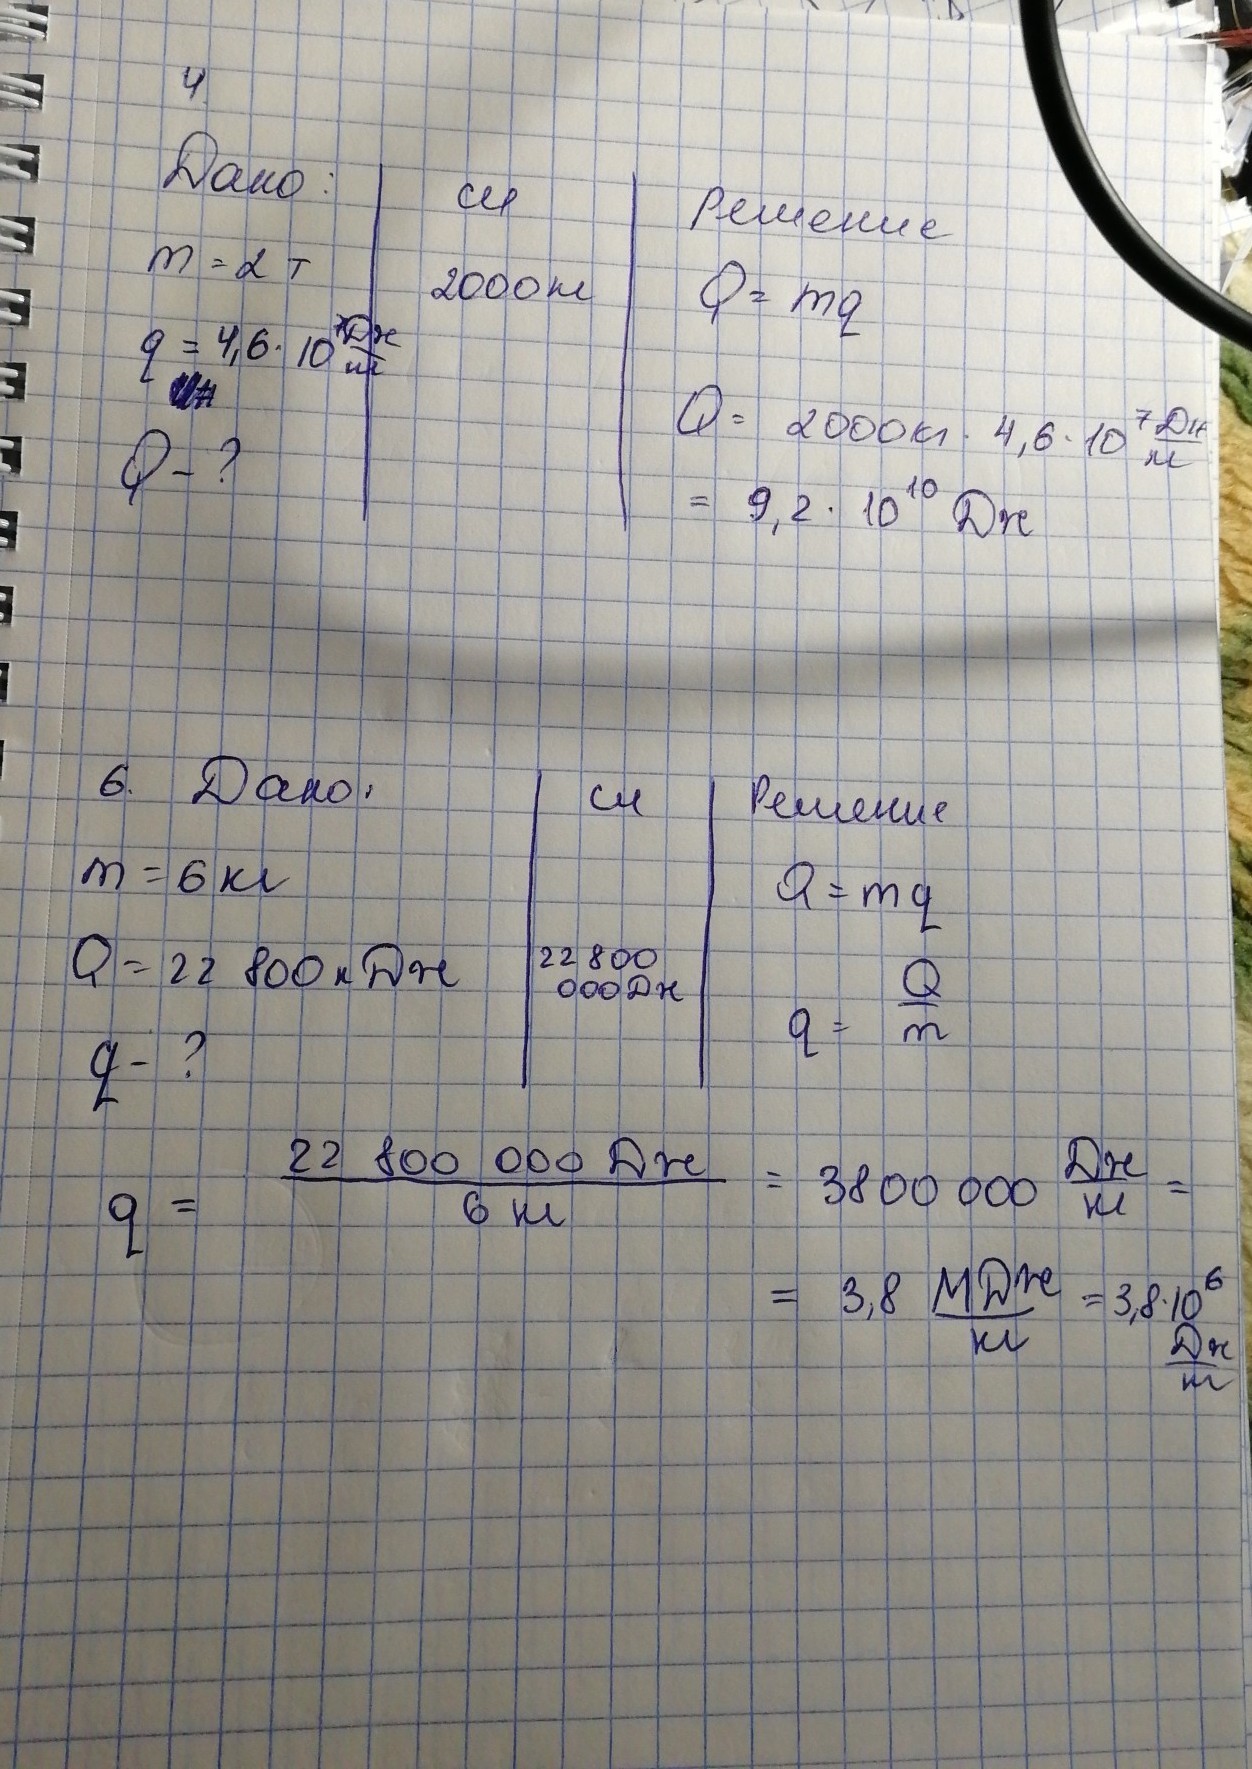 4.
Дано:
m = 2 т
q = 4,6 · 10⁷ Дж/кг
Q - ?
си
2000 кг
Решение
Q = mq
Q = 2000 кг · 4,6 · 10⁷ Дж/кг
= 9,2 · 10¹⁰ Дж
6. Дано:
m = 6 кг
Q = 22 800 кДж
q - ?
си
22 800
000 Дж
Решение
Q = mq
q = Q/m
q = 22 800 000 Дж / 6 кг = 3800 000 Дж/кг =
= 3,8 МДж/кг = 3,8 · 10⁶ Дж/кг